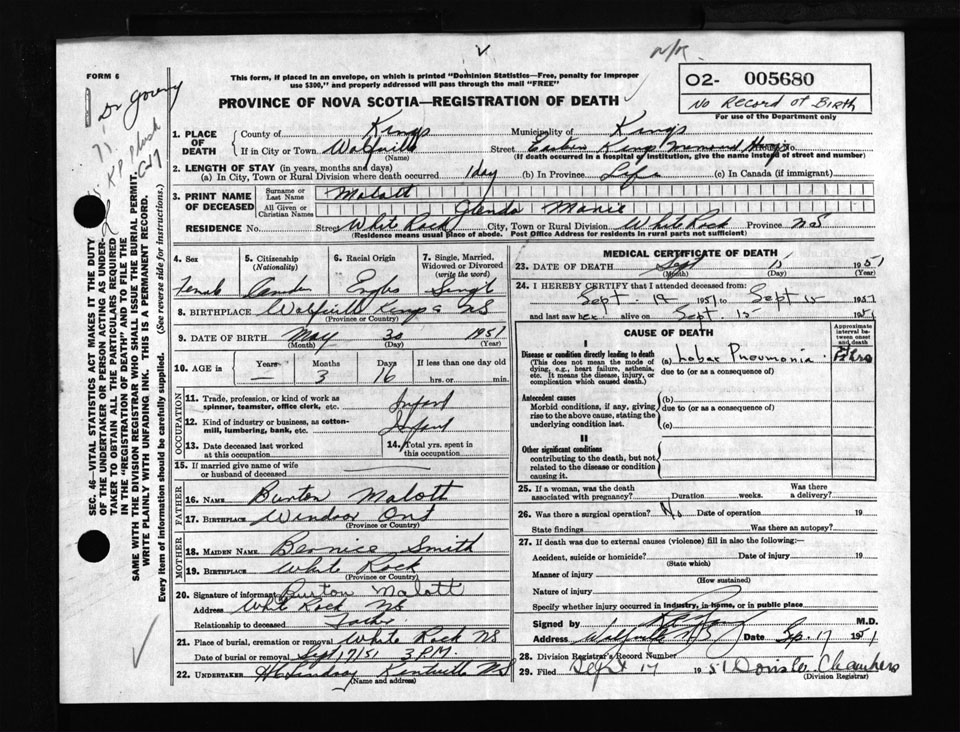 N/R.
FORM 6
This form, if placed in an envelope, on which is printed "Dominion Statistics—Free, penalty for improper
use $300," and properly addressed will pass through the mail "FREE"
O2- 005680
No Record of Birth
For use of the Department only
Dr
PROVINCE OF NOVA SCOTIA—REGISTRATION OF DEATH
SEC. 46—VITAL STATISTICS ACT MAKES IT THE DUTY
OF THE UNDERTAKER OR PERSON ACTING AS UNDER-
TAKER TO OBTAIN ALL THE PARTICULARS REQUIRED
IN THE "REGISTRATION OF DEATH" AND TO FILE THE
SAME WITH THE DIVISION REGISTRAR WHO SHALL ISSUE THE BURIAL PERMIT.
WRITE PLAINLY WITH UNFADING INK. THIS IS A PERMANENT RECORD.
Every item of information should be carefully supplied. (See reverse side for instructions.)
1. PLACE OF DEATH
County of Kings Municipality of Kings
If in City or Town Wolfville Street Eastern Kings Memorial
(Name) (If death occurred in a hospital or institution, give the name instead of street and number)
2. LENGTH OF STAY (in years, months and days)
(a) In City, Town or Rural Division where death occurred 1 day (b) In Province Life (c) In Canada (if immigrant)
3. PRINT NAME OF DECEASED
Surname or Last Name Malott
All Given or Christian Names Glenda Marie
RESIDENCE No. Street White Rock City, Town or Rural Division White Rock Province NS
(Residence means usual place of abode. Post Office Address for residents in rural parts not sufficient)
4. Sex Female
5. Citizenship (Nationality)
6. Racial Origin
7. Single, Married, Widowed or Divorced (write the word) Single
8. BIRTHPLACE Wolfville Kings NS
(Province or Country)
9. DATE OF BIRTH May 30 1951
(Month) (Day) (Year)
10. AGE in Years — Months 3 Days 16 If less than one day old hrs. or min.
OCCUPATION
11. Trade, profession, or kind of work as
spinner, teamster, office clerk, etc. Infant
12. Kind of industry or business, as cotton-
mill, lumbering, bank, etc. Infant
13. Date deceased last worked
at this occupation
14. Total yrs. spent in
this occupation
15. If married give name of wife
or husband of deceased
FATHER
16. NAME Burton Malott
17. BIRTHPLACE Windsor Ont
(Province or Country)
MOTHER
18. MAIDEN NAME Bernice Smith
19. BIRTHPLACE White Rock
(Province or Country)
20. Signature of informant Burton Malott
Address White Rock NS
Relationship to deceased Father
21. Place of burial, cremation or removal White Rock NS
Date of burial or removal Sept 17/51 3 P.M.
22. UNDERTAKER Lindsay Kentville NS
(Name and address)
MEDICAL CERTIFICATE OF DEATH
23. DATE OF DEATH Sept 15 1951
(Month) (Day) (Year)
24. I HEREBY CERTIFY that I attended deceased from:
Sept. 14 1951 to Sept 15 1951
and last saw her alive on Sept. 15 1951
CAUSE OF DEATH
Approximate interval between onset and death
I
Disease or condition directly leading to death
(This does not mean the mode of
dying, e.g., heart failure, asthenia,
etc. It means the disease, injury, or
complication which caused death.)
(a) Lobar Pneumonia.
due to (or as a consequence of)
Antecedent causes
Morbid conditions, if any, giving
rise to the above cause, stating the
underlying condition last.
(b)
due to (or as a consequence of)
(c)
II
Other significant conditions
contributing to the death, but not
related to the disease or condition
causing it.
25. If a woman, was the death
associated with pregnancy? Duration weeks. Was there
a delivery?
26. Was there a surgical operation? No Date of operation 19
State findings Was there an autopsy?
27. If death was due to external causes (violence) fill in also the following:—
Accident, suicide or homicide? Date of injury 19
(State which)
Manner of injury
(How sustained)
Nature of injury
Specify whether injury occurred in industry, in home, or in public place
Signed by M.D.
Address Wolfville NS Date Sep. 17 1951
28. Division Registrar's Record Number
29. Filed Sept 17 1951 Chambers
(Division Registrar)